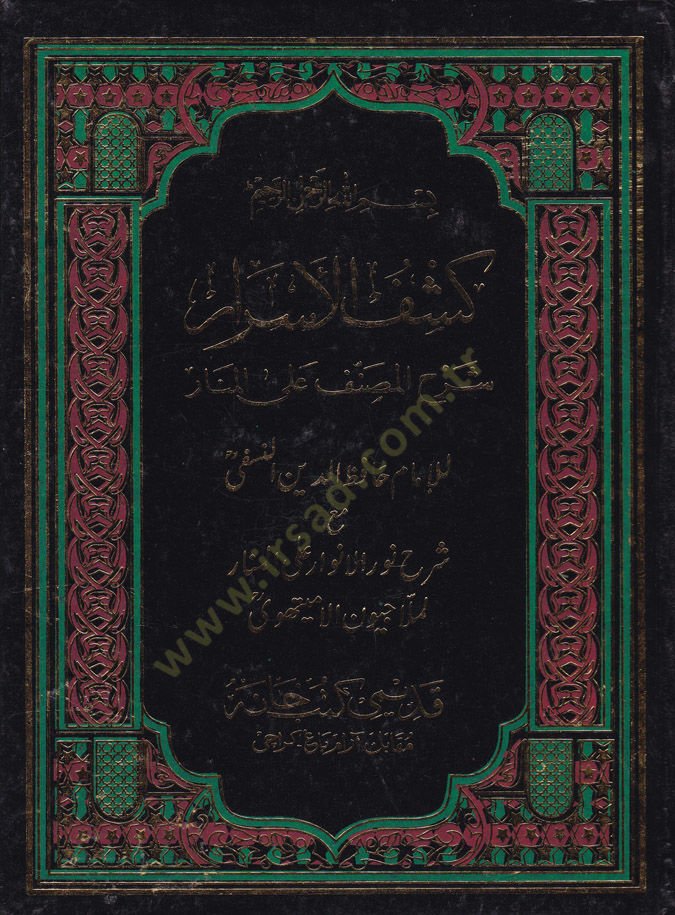 بسم الله الرحمن الرحيم
كشف الأسرار
شرح المصنف على المنار
للإمام حافظ الدين النسفي
مع
شرح نور الأنوار على المنار
لملاجيون الاميتهوي
قديمي كتب خانه
مقابل آرام باغ - كراچي
www.irsad.com.tr